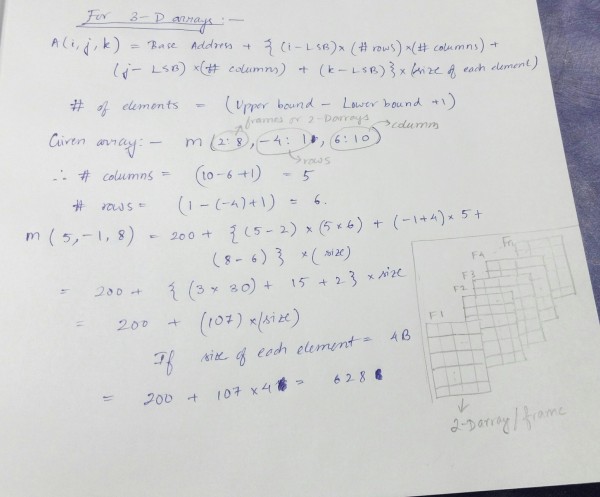 For 3-D arrays :-
A(i, j, k) = Base Address + { (1-LSB) x (# rows) x (# columns) +
(j - LSB) x (# columns) + (k - LSB) } x (size of each element)
# of elements = (Upper bound - Lower bound + 1)
frames or 2-Darrays
columns
Given array:- m (2:8, -4:1, 6:10)
rows
∴ # columns = (10-6+1) = 5
# rows = (1-(-4)+1) = 6.
m (5, -1, 8) = 200 + { (5-2) x (5x6) + (-1+4) x 5 +
(8-6) } x (size)
= 200 + { (3 x 30) + 15 + 2 } x size
= 200 + (107) x (size)
If size of each element = 4B
= 200 + 107 x 4 = 628
Fn
F4
F3
F2
F1
2-Darray/frame